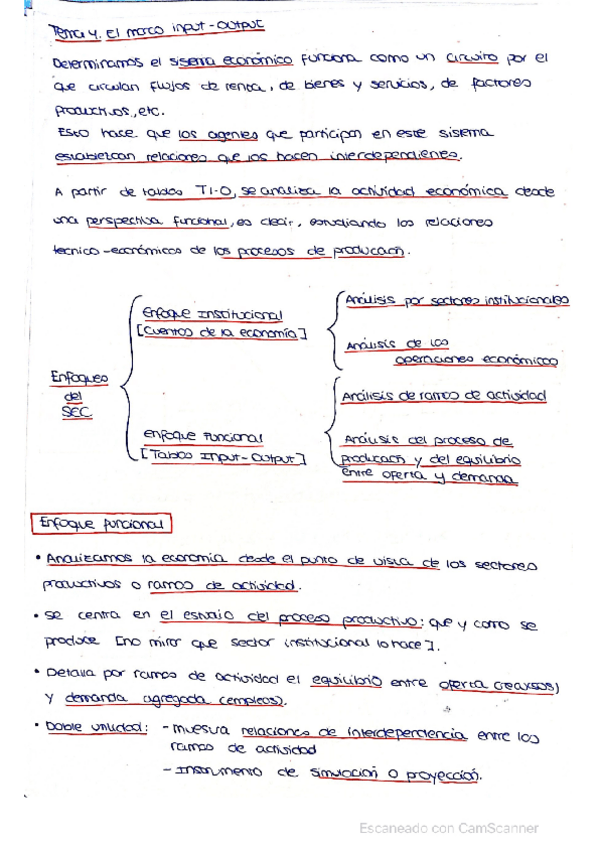 Tema 4. El marco input-output
Determinamos el sistema económico funciona como un circuito por el
que circulan flujos de renta, de bienes y servicios, de factores
productivos, etc.
Esto hace que los agentes que participan en este sistema
establezcan relaciones que los hacen interdependientes.
A partir de tablas TI-O, se analiza la actividad económica desde
una perspectiva funcional, es decir, estudiando las relaciones
técnico-económicas de los procesos de producción.
Enfoques
del
SEC
Enfoque Institucional
[Cuentas de la economía]
Análisis por sectores institucionales
Análisis de las
operaciones económicas
Enfoque Funcional
[Tablas Input-Output]
Análisis de ramas de actividad
Análisis del proceso de
producción y del equilibrio
entre oferta y demanda
Enfoque funcional
• Analizamos la economía desde el punto de vista de los sectores
productivos o ramas de actividad.
• Se centra en el estudio del proceso productivo: que y como se
produce [no mirar que sector institucional lo hace].
• Detalla por ramas de actividad el equilibrio entre oferta (recursos)
y demanda agregada (empleos).
• Doble utilidad: - muestra relaciones de interdependencia entre las
ramas de actividad
- Instrumento de simulación o proyección.
Escaneado con CamScanner